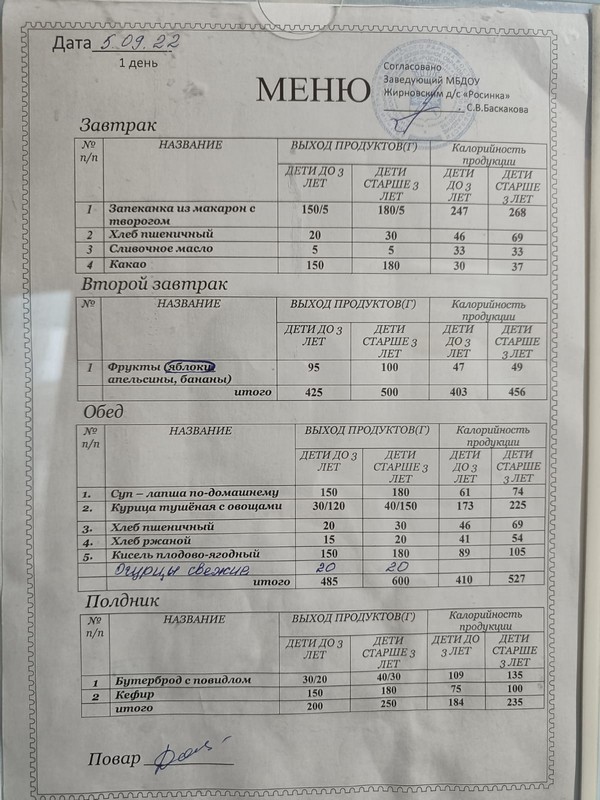 Дата 5.09.22
1 день
Согласовано
Заведующий МБДОУ
Жирновским д/с «Росинка»
С.В.Баскакова
МЕНЮ
Завтрак
№ п/п НАЗВАНИЕ ВЫХОД ПРОДУКТОВ(Г) Калорийность продукции
ДЕТИ ДО 3 ЛЕТ ДЕТИ СТАРШЕ 3 ЛЕТ ДЕТИ ДО 3 ЛЕТ ДЕТИ СТАРШЕ 3 ЛЕТ
1 Запеканка из макарон с творогом 150/5 180/5 247 268
2 Хлеб пшеничный 20 30 46 69
3 Сливочное масло 5 5 33 33
4 Какао 150 180 30 37
Второй завтрак
№ НАЗВАНИЕ ВЫХОД ПРОДУКТОВ(Г) Калорийность продукции
ДЕТИ ДО 3 ЛЕТ ДЕТИ СТАРШЕ 3 ЛЕТ ДЕТИ ДО 3 ЛЕТ ДЕТИ СТАРШЕ 3 ЛЕТ
1 Фрукты (яблоки, апельсины, бананы) 95 100 47 49
итого 425 500 403 456
Обед
№ п/п НАЗВАНИЕ ВЫХОД ПРОДУКТОВ(Г) Калорийность продукции
ДЕТИ ДО 3 ЛЕТ ДЕТИ СТАРШЕ 3 ЛЕТ ДЕТИ ДО 3 ЛЕТ ДЕТИ СТАРШЕ 3 ЛЕТ
1. Суп – лапша по-домашнему 150 180 61 74
2. Курица тушёная с овощами 30/120 40/150 173 225
3. Хлеб пшеничный 20 30 46 69
4. Хлеб ржаной 15 20 41 54
5. Кисель плодово-ягодный 150 180 89 105
Огурцы свежие 20 20
итого 485 600 410 527
Полдник
№ п/п НАЗВАНИЕ ВЫХОД ПРОДУКТОВ(Г) Калорийность продукции
ДЕТИ ДО 3 ЛЕТ ДЕТИ СТАРШЕ 3 ЛЕТ ДЕТИ ДО 3 ЛЕТ ДЕТИ СТАРШЕ 3 ЛЕТ
1 Бутерброд с повидлом 30/20 40/30 109 135
2 Кефир 150 180 75 100
итого 200 250 184 235
Повар